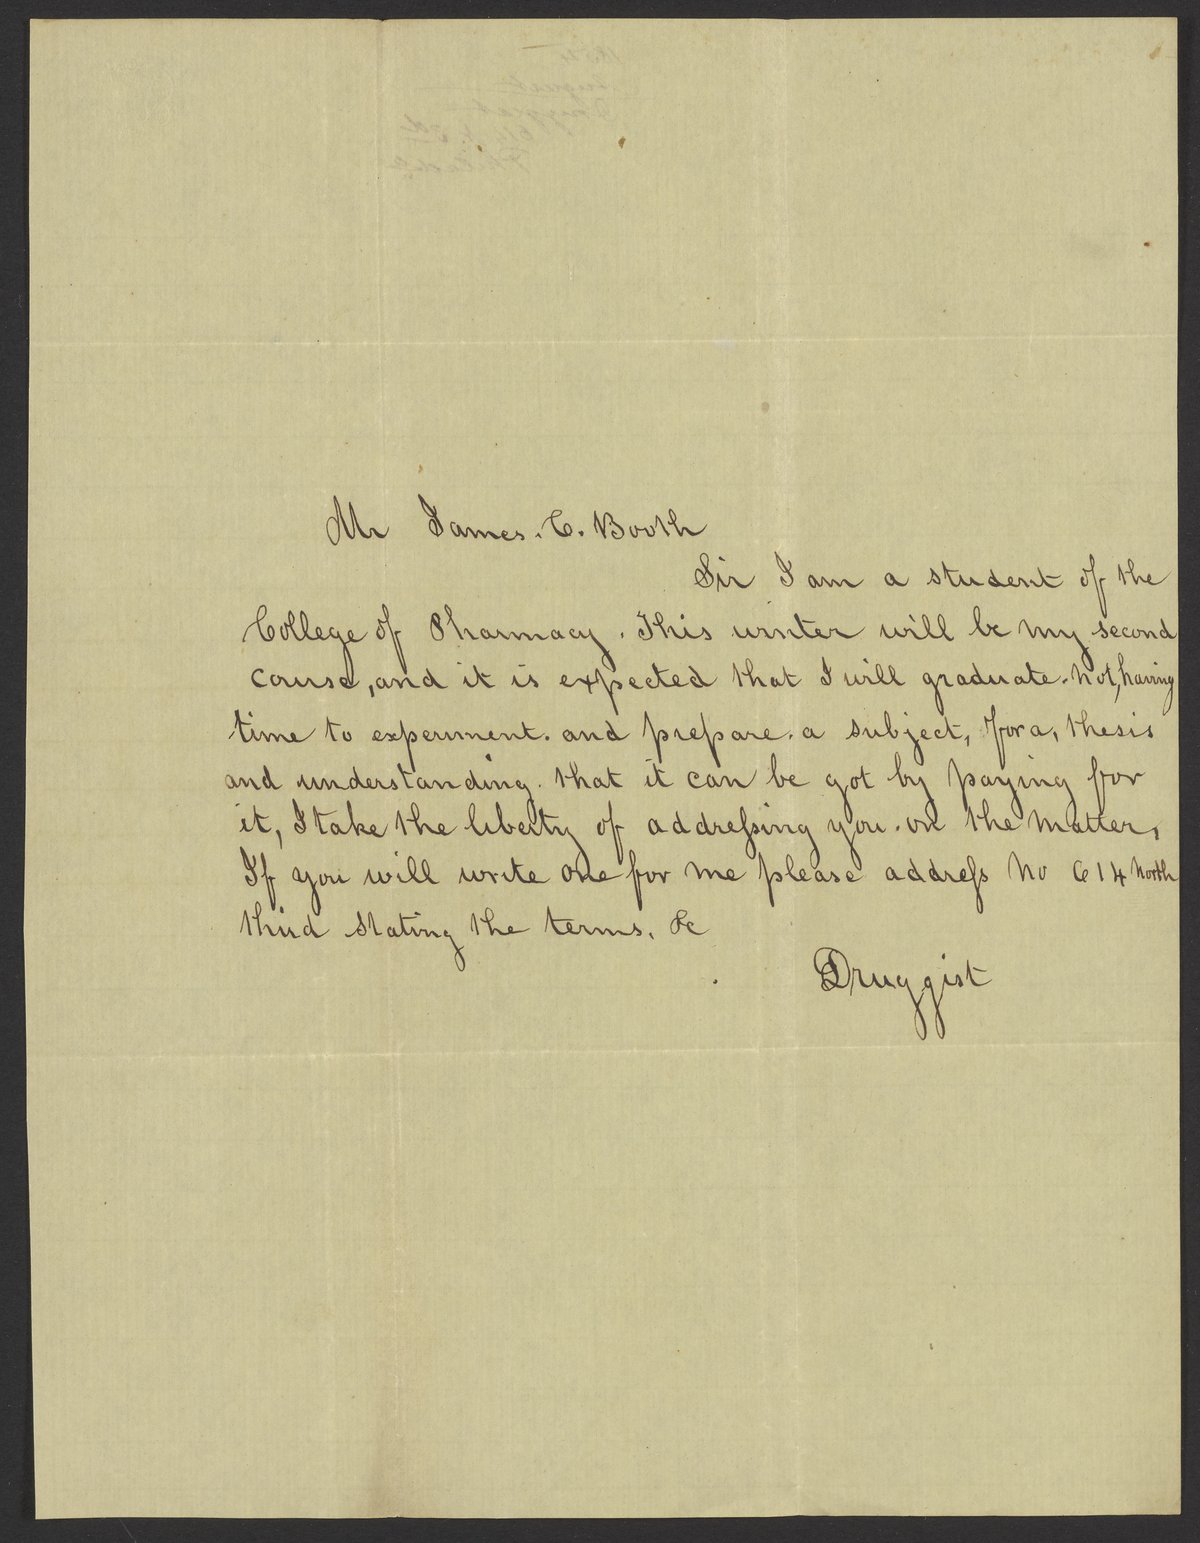 Mr James. C. Booth
Sir I am a student of the
College of Pharmacy. This winter will be my second
course, and it is expected that I will graduate. not, having
time to experiment. and prepare. a subject, for a, thesis
and understanding. that it can be got by paying for
it, I take the liberty of addressing you. on the matter,
If you will write one for me please address No 614 North
third stating the terms. &c
Druggist